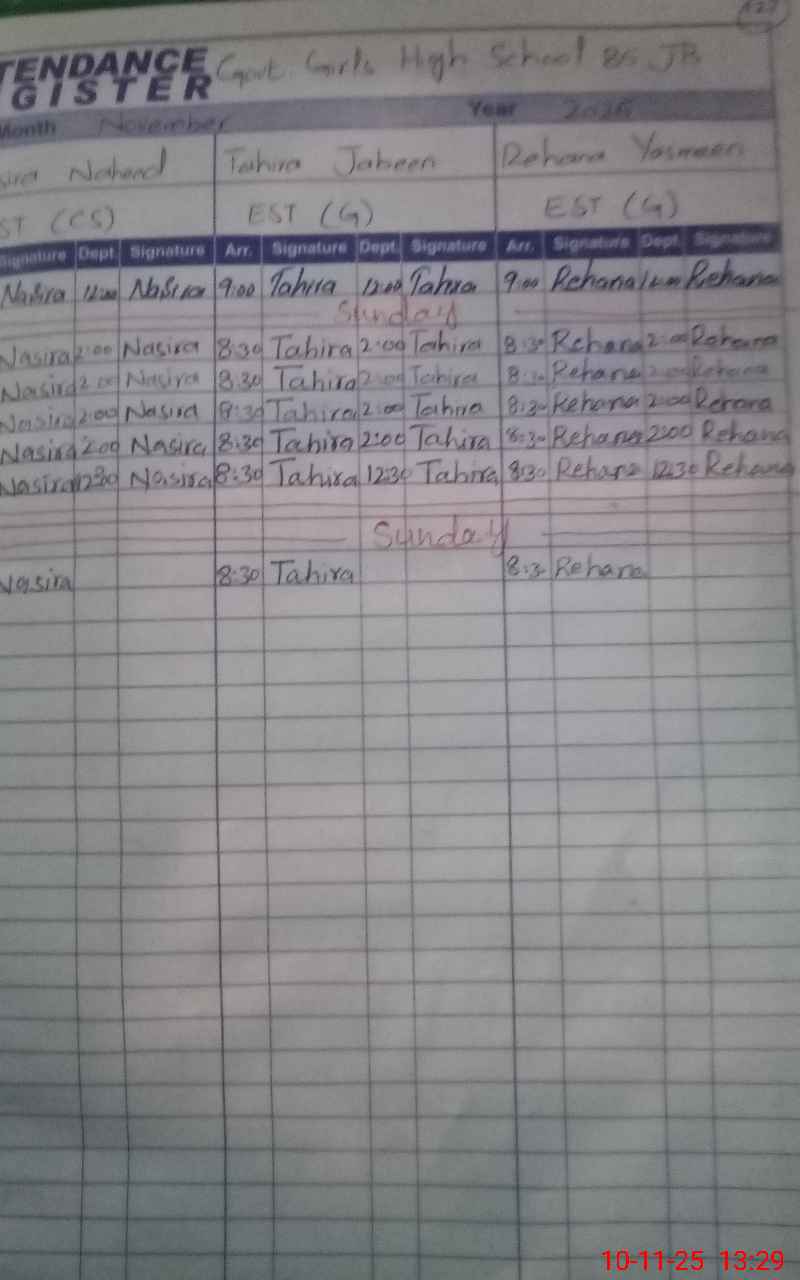 TENDANCE Govt. Girls High School 85 JB
GISTER
Month November Year 2025
sira Naheed Tahira Jabeen Rehana Yasmeen
ST (CS) EST (G) EST (G)
Signature Dept. Signature Arr. Signature Dept. Signature Arr. Signature Dept. Signature
Nasira 12:00 Nasira 9:00 Tahira 12:00 Tahira 9:00 Rehana Rehana
Sunday
Nasira 2:00 Nasira 8:30 Tahira 2:00 Tahira 8:30 Rehana 2:00 Rehana
Nasira 2:00 Nasira 8:30 Tahira 2:00 Tahira 8:30 Rehana 2:00 Rehana
Nasira 2:00 Nasira 8:30 Tahira 2:00 Tahira 8:30 Rehana 2:00 Rehana
Nasira 2:00 Nasira 8:30 Tahira 2:00 Tahira 8:30 Rehana 2:00 Rehana
Nasira 12:30 Nasira 8:30 Tahira 12:30 Tahira 8:30 Rehana 12:30 Rehana
Sunday
Nasira 8:30 Tahira 8:3 Rehana
10-11-25 13:29